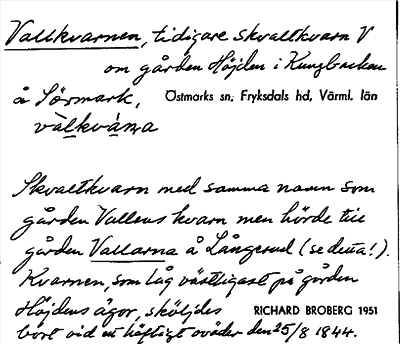 Vallkvarnen, tidigare skvaltkvarn V
om gården Höjden i Kungbacken
å Sörmark, Östmarks sn, Fryksdals hd, Värml. län
vàlkvàṇa
Skvaltkvarn med samma namn som
gården Vallens kvarn men hörde till
gården Vallarna å Långerud (se detta!).
Kvarnen, som låg västligast på gården
Höjdens ägor, sköljdes RICHARD BROBERG 1951
bort vid ett häftigt oväder den 25/8 1844.